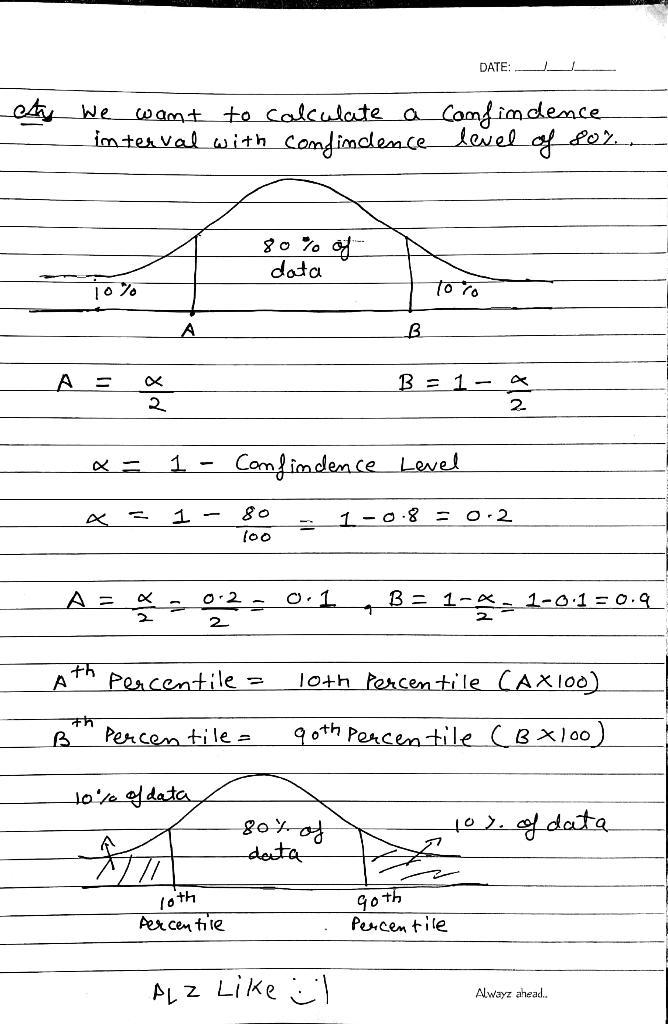 DATE: ___/___/___
Ans We want to calculate a Confindence
interval with Confindence level of 80%.
80% of
data
10%
10%
A
B
A = α/2
B = 1 - α/2
α = 1 - Confindence Level
α = 1 - 80/100 = 1-0.8 = 0.2
A = α/2 = 0.2/2 = 0.1 , B = 1-α/2 = 1-0.1 = 0.9
Ath Percentile = 10th Percentile (A×100)
Bth Percentile = 90th Percentile (B×100)
10% of data
80% of
data
10% of data
10th
Percentile
90th
Percentile
PLZ Like :)
Alwayz ahead..